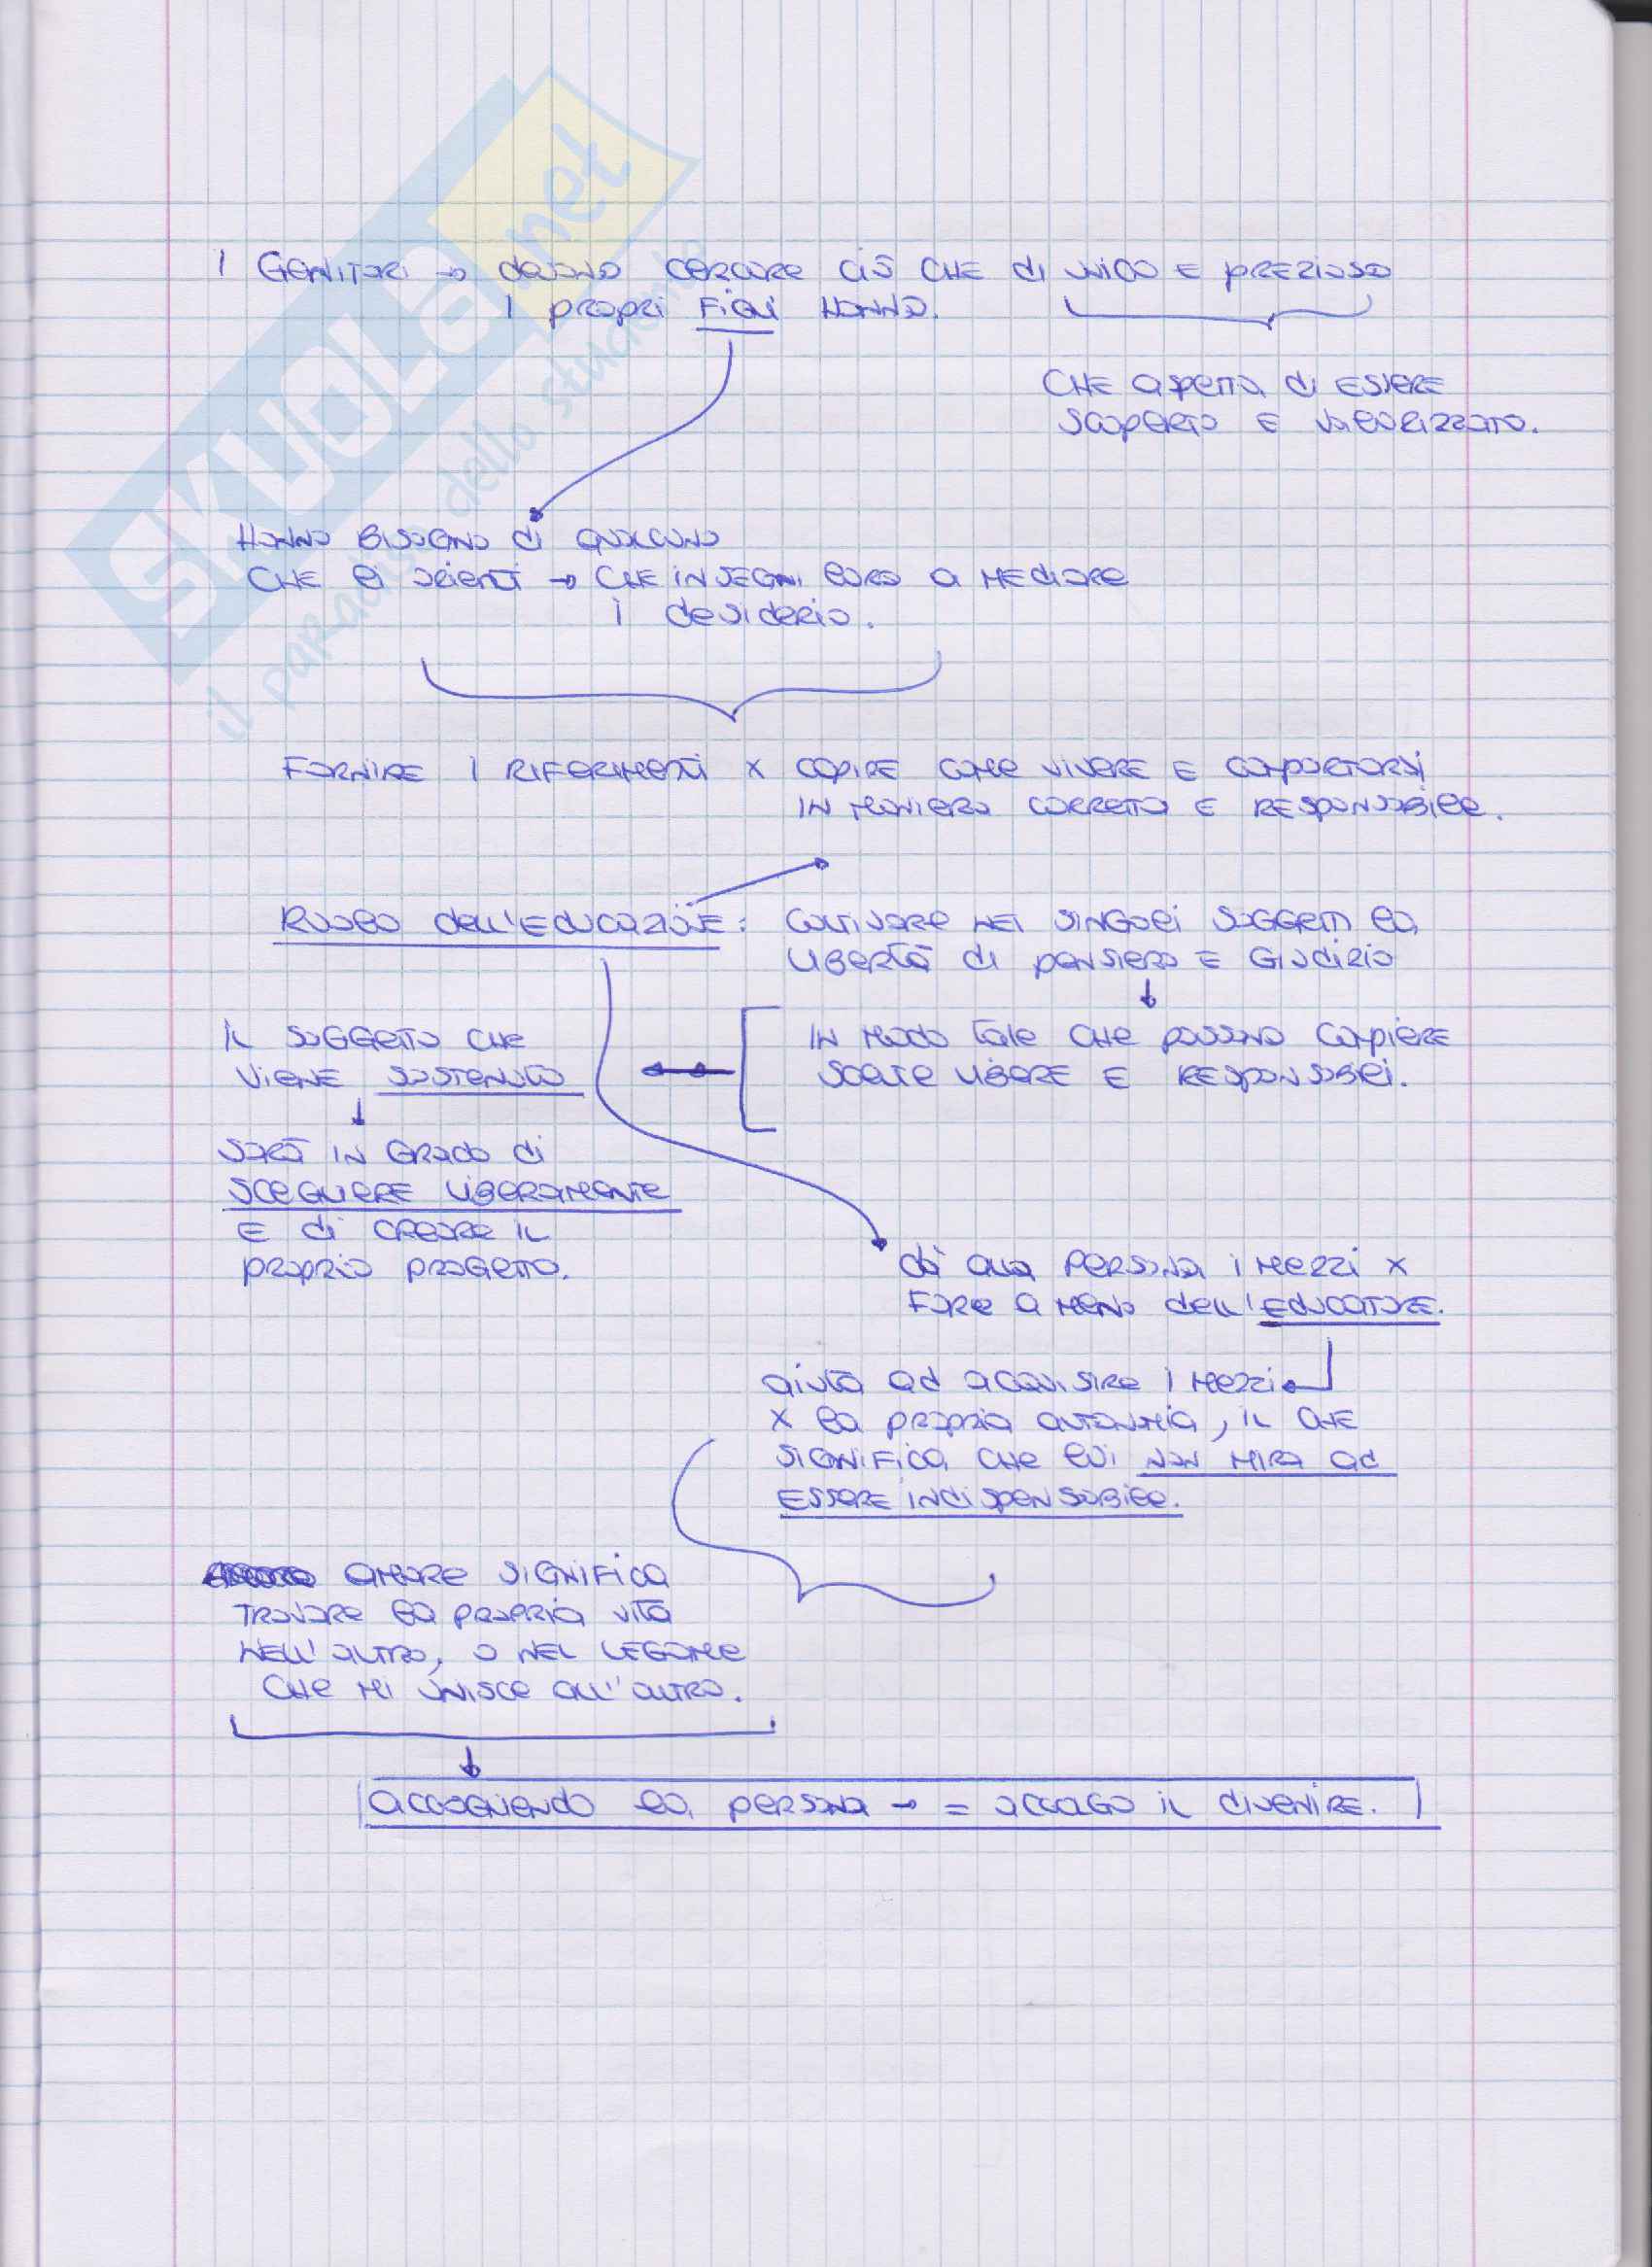 SKUOLA.net
il paradiso dello studente
I GENITORI → devono cercare ciò che di unico e prezioso
i propri figli hanno.
che aspetta di essere
scoperto e valorizzato.
Hanno bisogno di qualcuno
che li orienti → che insegni loro a mediare
i desiderio.
Fornire i riferimenti x capire come vivere e comportarsi
in maniera corretta e responsabile.
Ruolo dell'educazione: coltivare nei singoli soggetti la
libertà di pensiero e giudizio
↓
in modo tale che possano compiere
scelte libere e responsabili.
Il soggetto che
viene sostenuto
↓
sarà in grado di
scegliere liberamente
e di creare il
proprio progetto.
dà alla persona i mezzi x
fare a meno dell'educatore.
aiuta ad acquisire i mezzi
x la propria autonomia, il che
significa che lui non mira ad
essere indispensabile.
amare significa
trovare la propria vita
nell'altro, o nel legame
che mi unisce all'altro.
↓
accogliendo la persona → = accolgo il divenire.